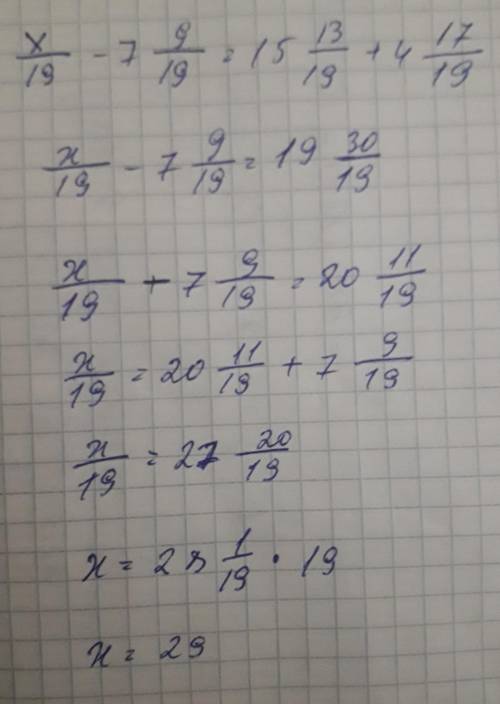 x/19 - 7 9/19 = 15 13/19 + 4 17/19
x/19 - 7 9/19 = 19 30/19
x/19 - 7 9/19 = 20 11/19
x/19 = 20 11/19 + 7 9/19
x/19 = 27 20/19
x = 28 1/19 · 19
x = 29